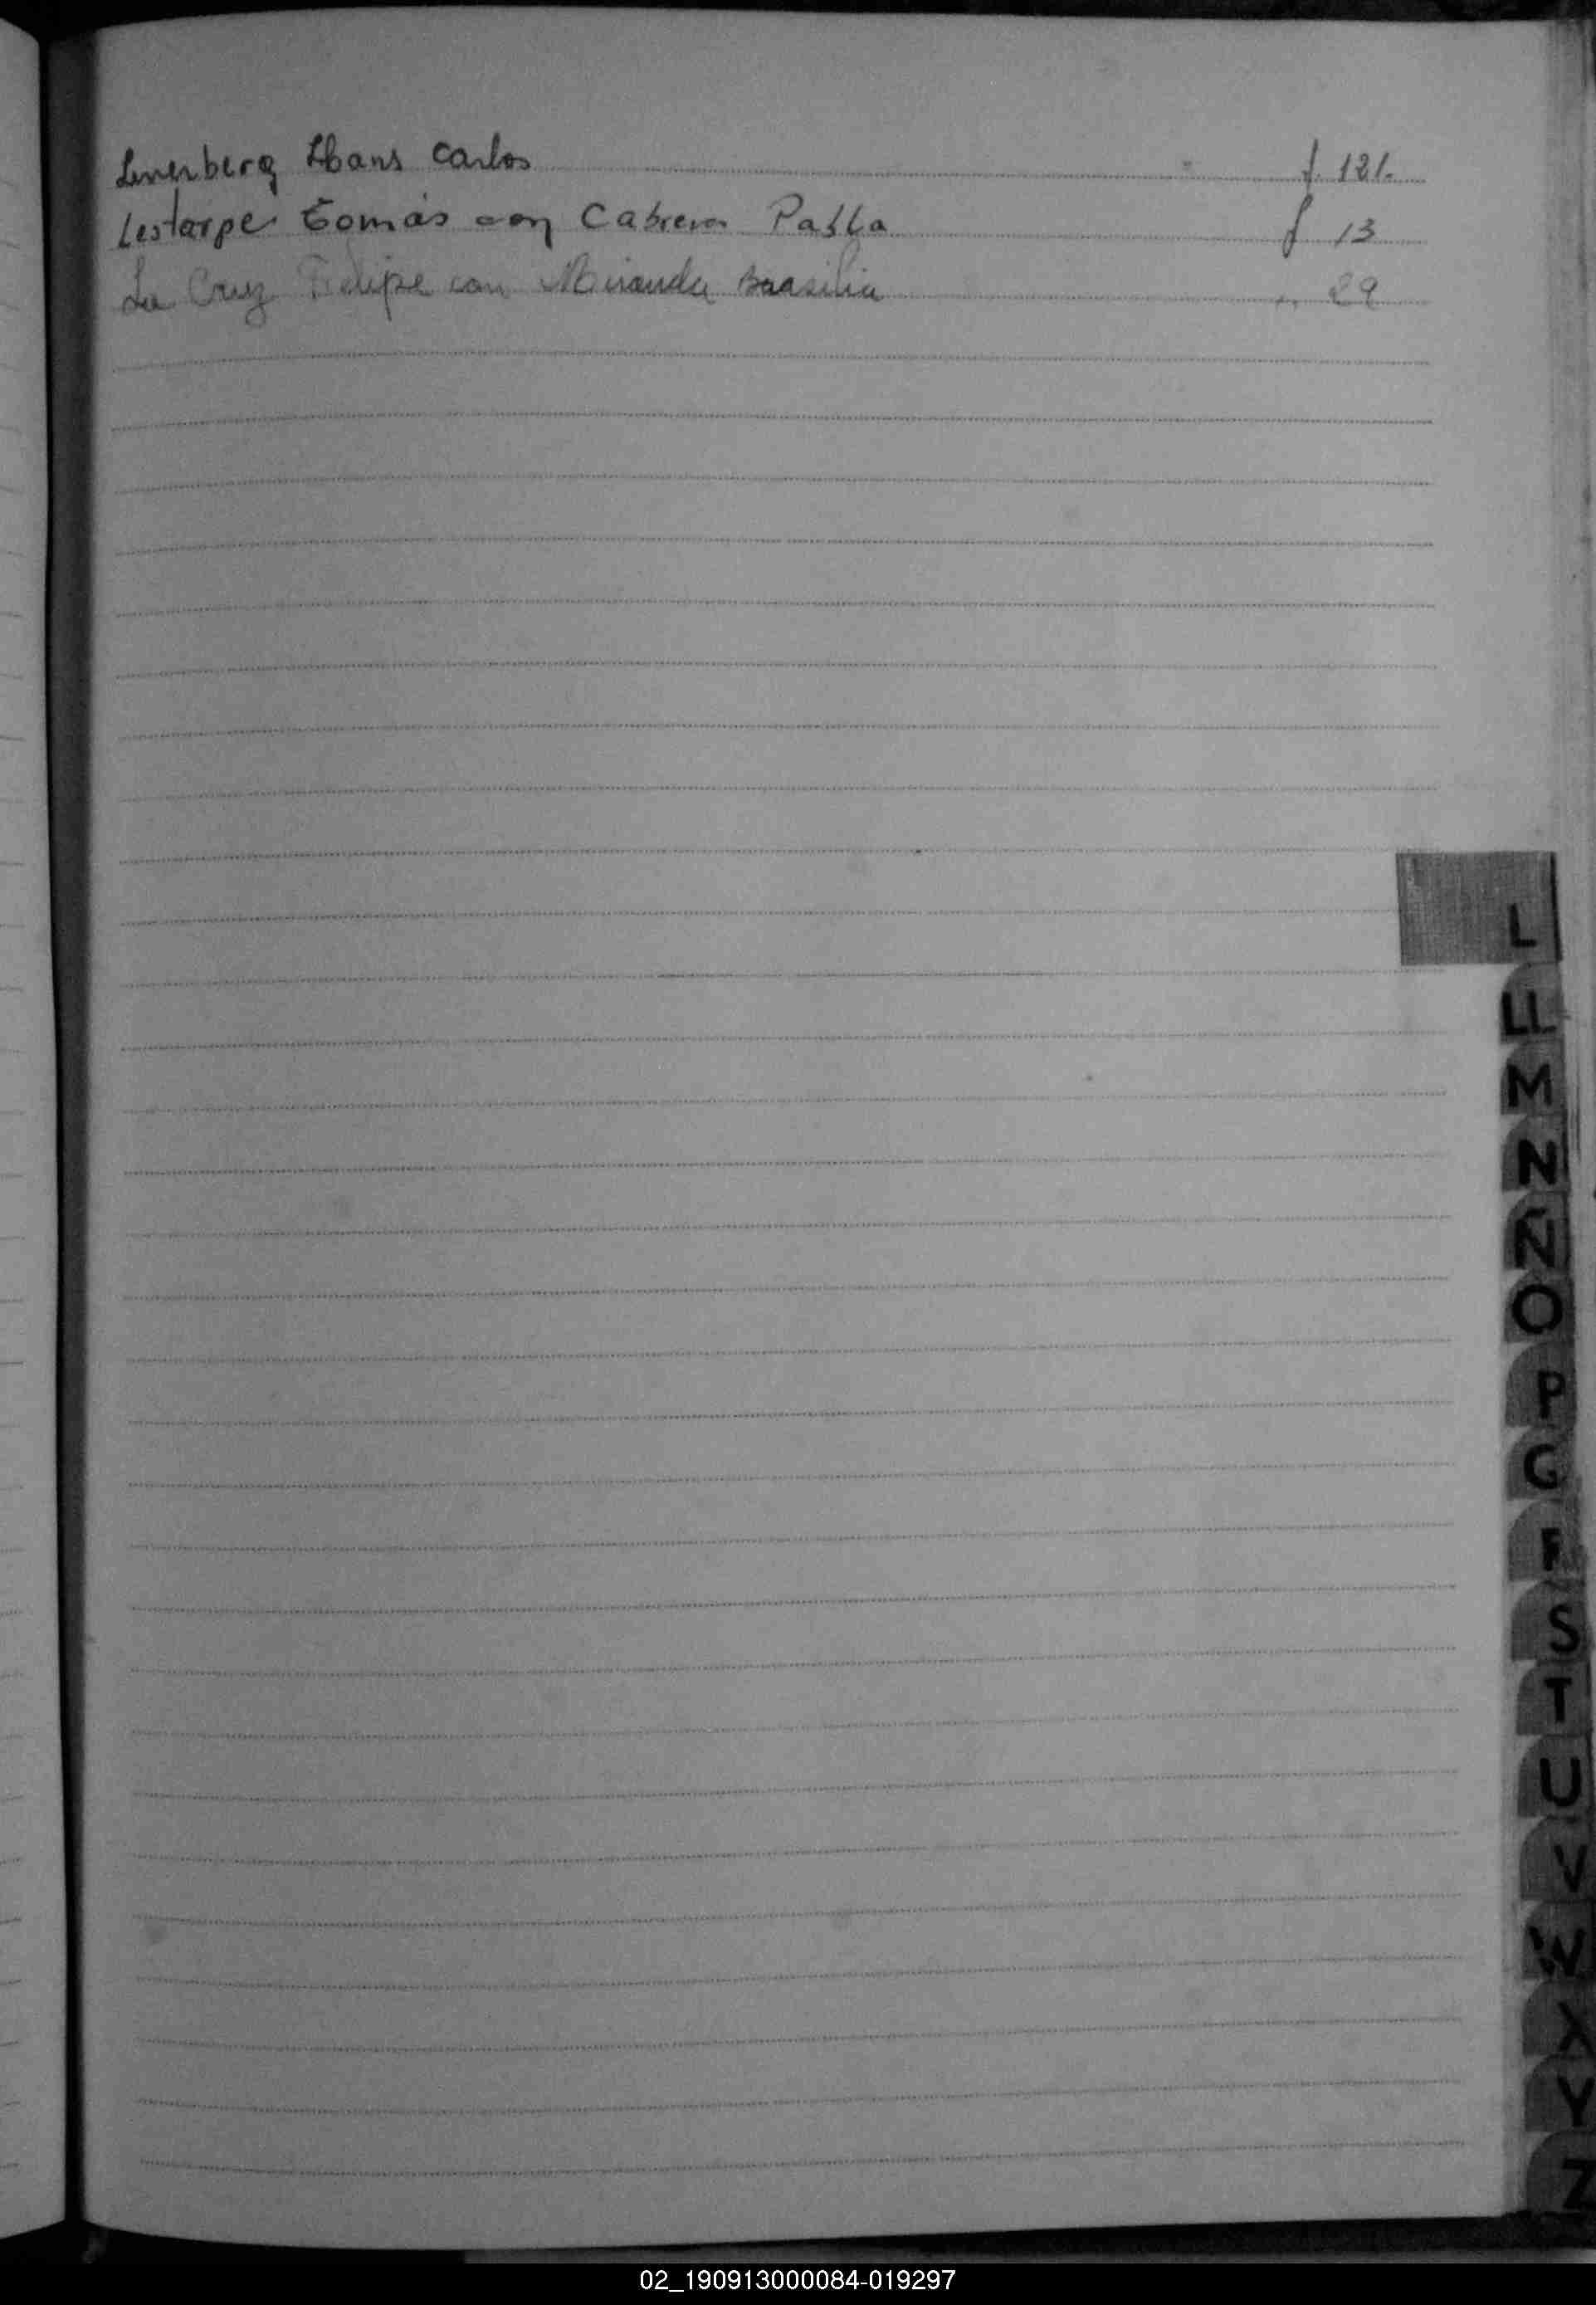 Lenerberg Hans Carlos f. 121.
Lestarpe Tomás con Cabrera Pabla f 13
La Cruz Felipe con Miranda Basilia " 29
L
LL
M
N
Ñ
O
P
S
T
U
V
W
X
Y
Z
02_190913000084-019297